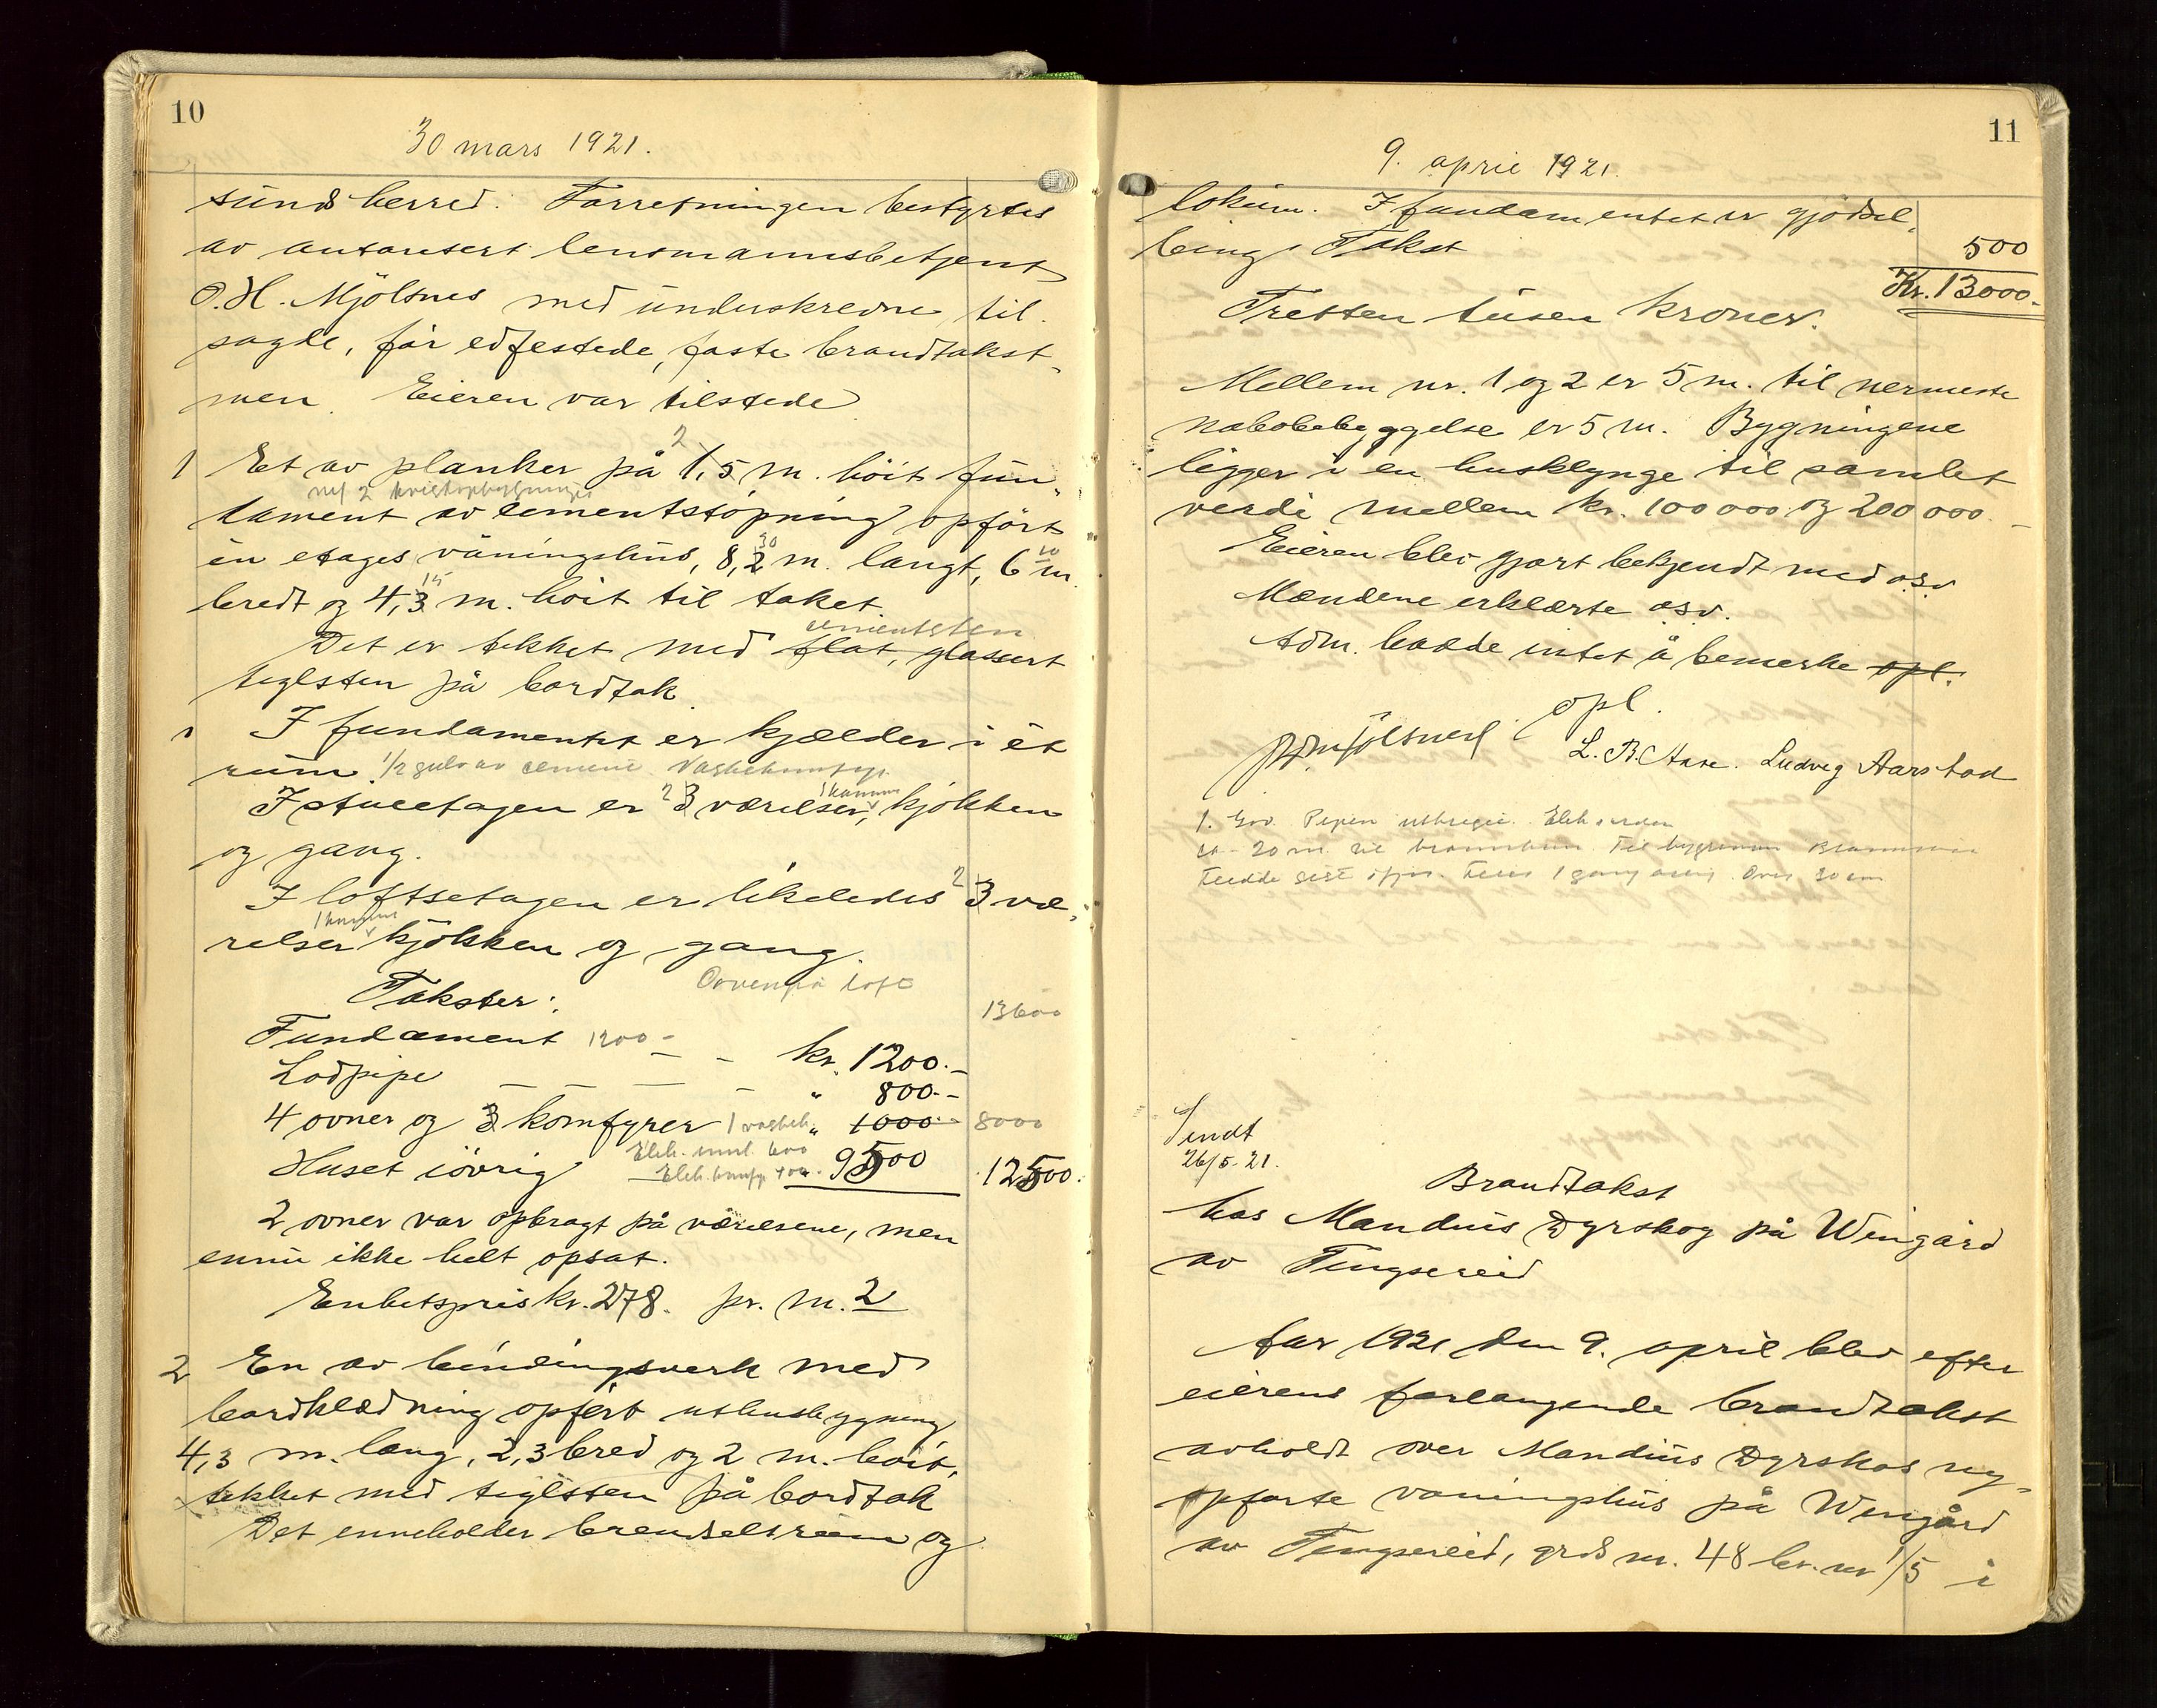 10
30 mars 1921.
sunds herred. Forretningen bestyrtes
av autorisert lensmannsbetjent
O. H. Mjölsnes med underskrevne til
sagde, før edfestede, faste brandtakst
men. Eieren var tilstede
2
1 Et av planker på 1,5 m. höit fun,
dament av cementstöpning opført
30 10
en etages våningshus, 8,2 m. langt, 6 m.
15
bredt og 4,3 m. höit til taket.
cementsten
Det er tekket med flat, glassert
teglsten på bordtak
1 I fundamentet er kjælder i et
rum. 1/2 gulv av cement
1 kammer
I stueetagen er 2 3 værelser, kjökken
og gang.
I loftsetagen er likeledes 2 3 væ,
1 kammer
relser kjökken og gang.
Takster: loft
13600
Fundament 1200 - — - kr. 1200.-
Lodpipe — — — — " 800.-
4 ovner og 3 komfyrer 1 " 1000.- 8000
Elek. 600
Huset iövrig Elek. 400 9500 12500.
2 ovner var opbragt på værelsene, men
ennu ikke helt opsat.
Enhetspris kr. 278. pr. m. 2
2 En av bindingsverk med
bordklædning opført uthusbygning,
4,3 m. lang, 2,3 bred og 2 m. høit,
tekket med teglsten på bordtak
Det inneholder brendselsrum og
11
9. april 1921.
lokum. I fundamentet er gjödsel,
bing. Takst 500
Kr. 13000.-
Tretten tusen kroner.
Mellem nr. 1 og 2 er 5 m. til nermeste
nabobebyggelse er 5 m. Bygningene
ligger i en husklynge til samlet
verdi mellem kr. 100 000 og 200 000.-
Eieren blev gjort bekjendt med osv
Mændene erklærte osv.
Adm. hadde intet å bemerke opl.
opl.
Mjölsnes L. B. Aase. Ludvig Aarstad
1. Pipen
20 m. til
1 gang Over 30 cm
Sendt
26/5-21.
Brandtakst
hos Mandius Dyrskog på Wingård
av Tengsereid
Aar 1921 den 9. april blev efter
eierens forlangende brandtakst
avholdt over Mandius Dyrskos ny,
opførte våningshus på Wingård
av Tengsereid, grds nr. 48 br. nr 1/5 i